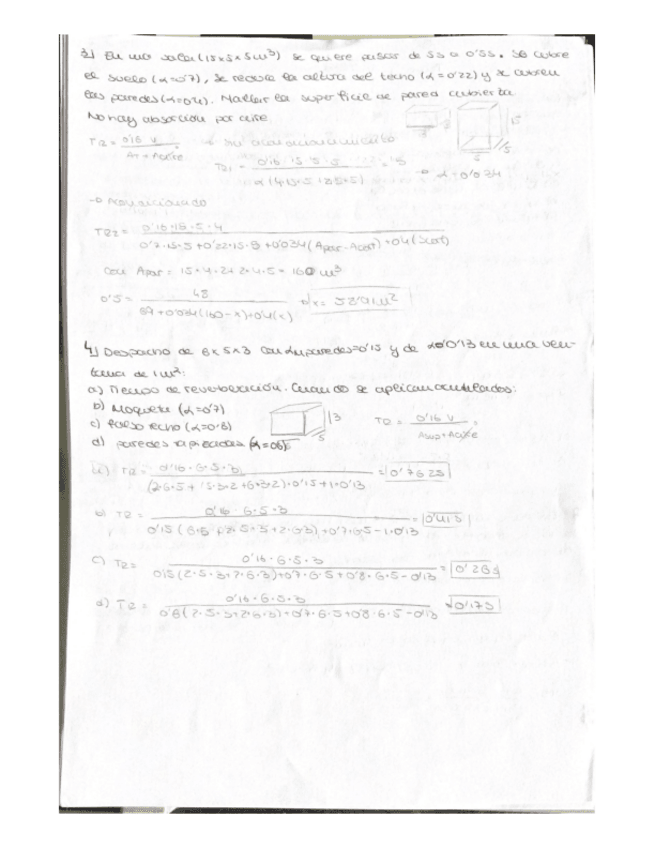 3) En una sala (15x5x5m³) se quiere pasar de 5s a 0'5s. Se cubre
el suelo (α=0'7), se reduce la altura del techo (α=0'22) y se cubren
las paredes (α=0'4). Hallar la superficie de pared cubierta.
No hay absorción por aire.
TR = 0'16 V / 
Sin acondicionamiento
TR1 = 0'16·15·5·5 / = 5
α = 0'034
→ Acondicionado
TR2 = 0'16·15·5·4 / 0'7·15·5+0'22·15·5+0'034(Apar-Acort)+0'4(Scort)
Con Apar = 15·4·2+2·4·5 = 160 m³
0'5 = 48 / 69+0'034(160-x)+0'4(x)
x= 52'91m²
4) Despacho de 6x5x3 con α paredes=0'15 y de α=0'13 en una ven-
tana de 1m²:
a) Tiempo de reverberación. Cuando se aplican acumulados:
b) Moqueta (α=0'7)
c) falso techo (α=0'8)
d) paredes tapizadas (α=0'6)
3
5
TR = 0'16 V / 
a) TR = 0'16·6·5·3 / (2·6·5+5·3·2+6·3·2)·0'15+1·0'13 = 0'762s
b) TR = 0'16·6·5·3 / 0'15(6·5+2·5·3+2·6·3)+0'7·6·5-1·0'13 = 0'41s
c) TR= 0'16·6·5·3 / 0'15(2·5·3+2·6·3)+0'7·6·5+0'8·6·5-0'13 = 0'26s
d) TR = 0'16·6·5·3 / 0'6(2·5·3+2·6·3)+0'7·6·5+0'8·6·5-0'13 = 0'17s